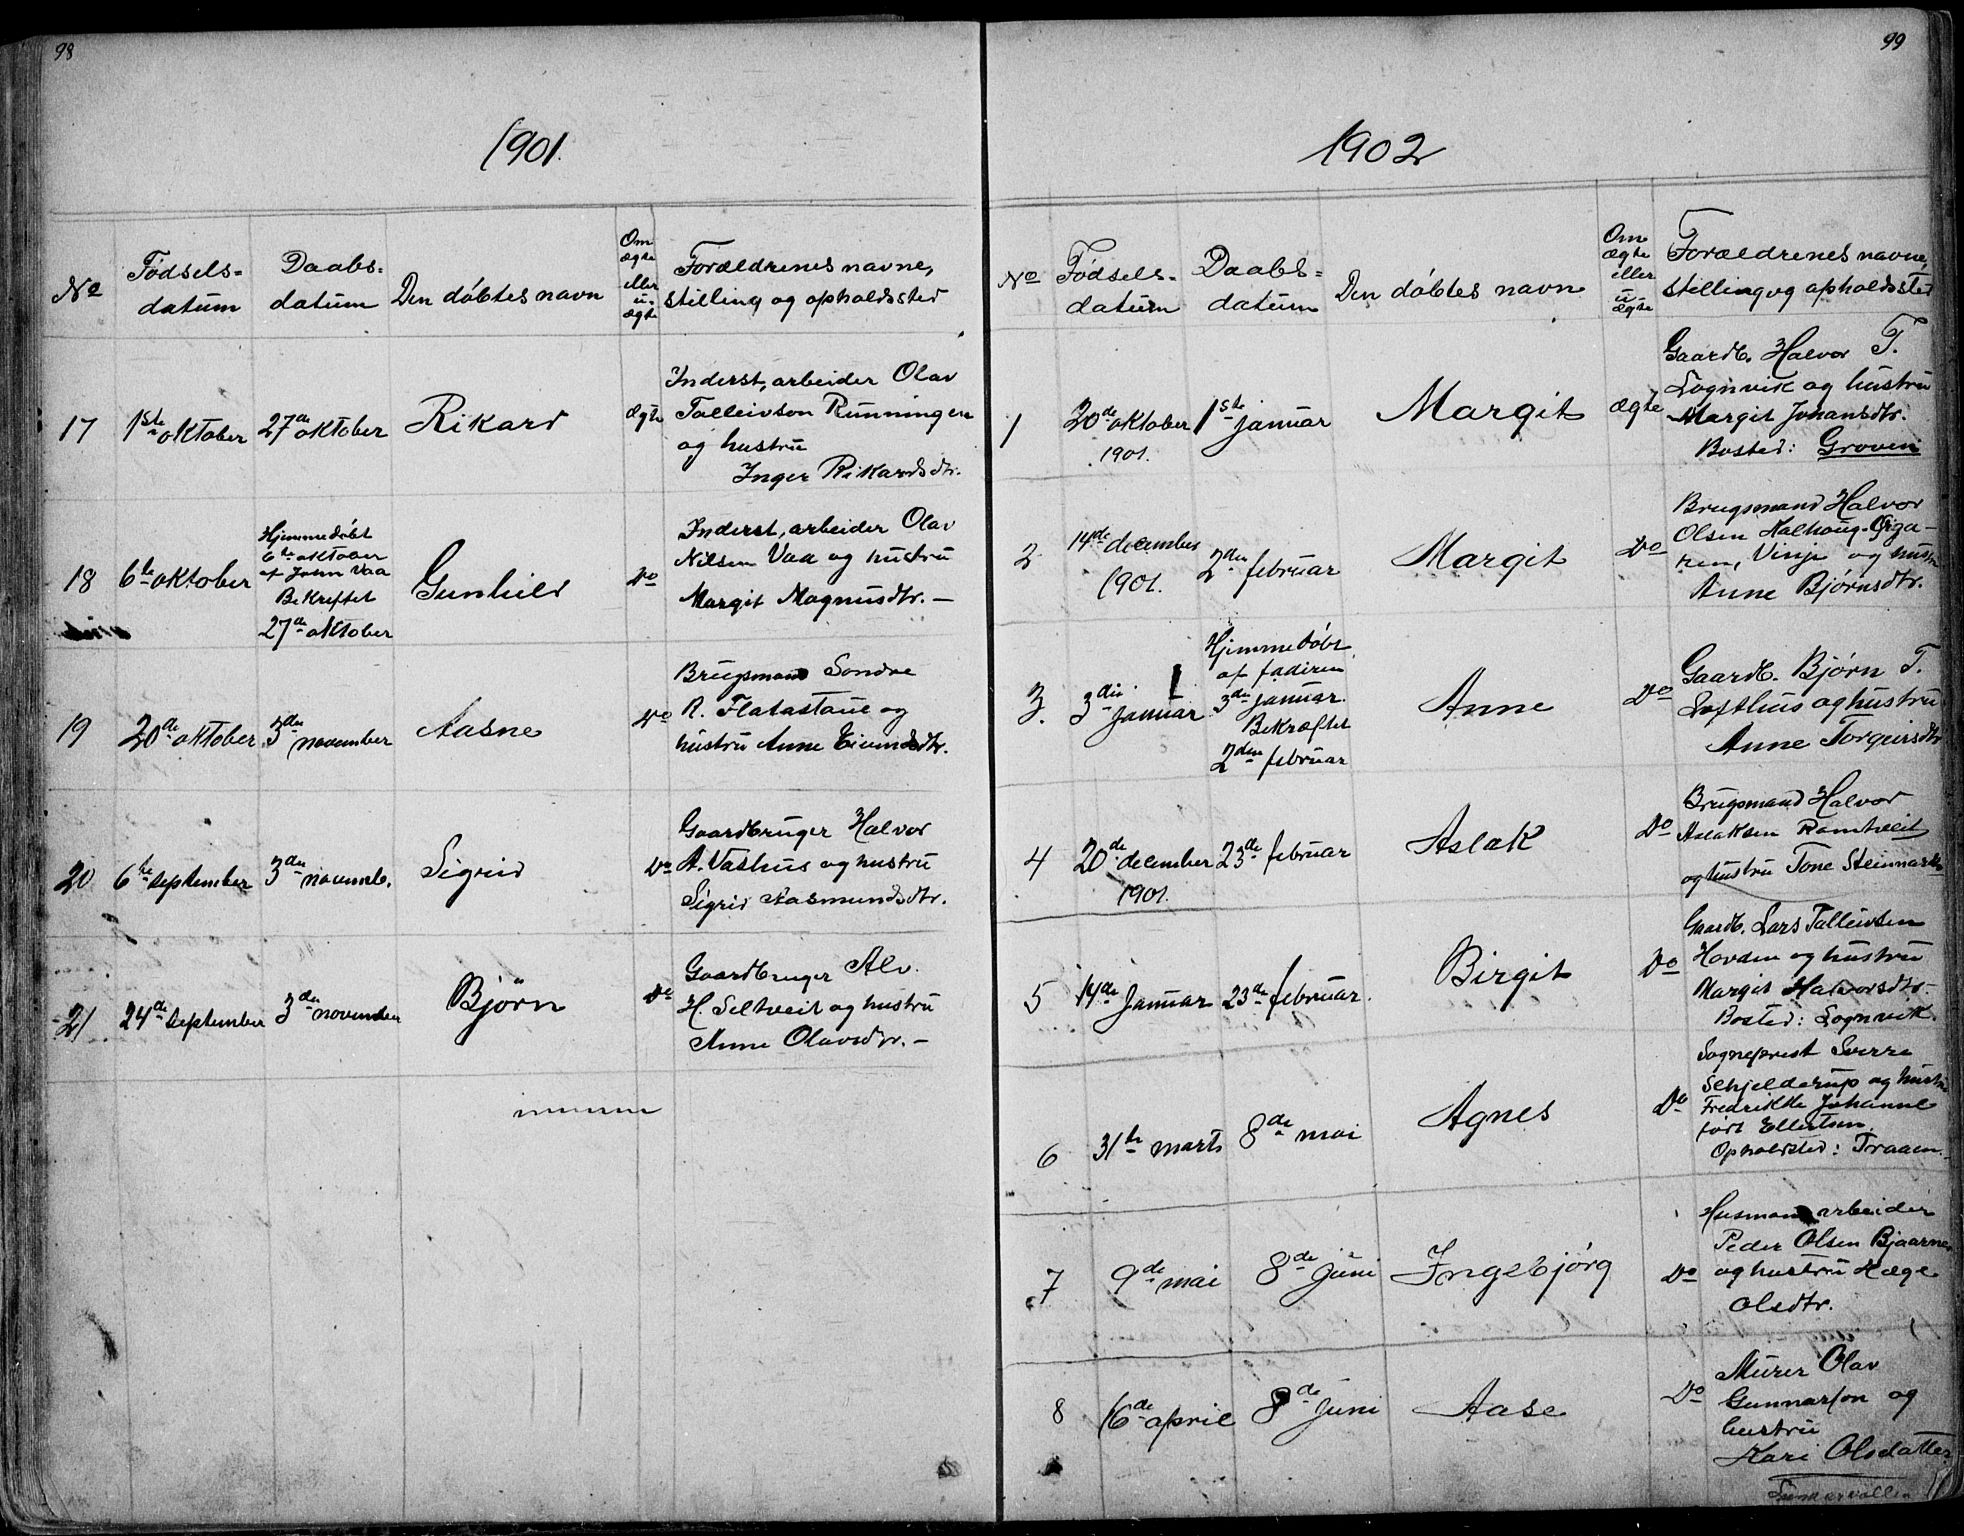 98
1901.
No
Fødsels-
datum
Daabs-
datum
Den døbtes navn
Om
ægte
eller
u-
ægte
Forældrenes navne,
stilling og opholdssted
17
1ste oktober
27de oktober
Rikard
ægte
Inderst, arbeider Olav
Talleivson Runningen
og hustru
Inger Rikardsdtr.
18
6te oktober
Hjemmedøbt
6te oktober
af John Vaa
Bekreftet
27de oktober
Gunhild
Do
Inderst, arbeider Olav
Nilsen Vaa og hustru
Margit Magnusdtr. —
19
20de oktober
3die november
Aasne
Do
Brugsmand Sondre
R. Flatastaue og
hustru Anne Eivindsdtr.
20
6te september
3die novemb.
Sigrid
Do
Gaardbruger Halvor
A. Vashus og hustru
Sigrid Aasmundsdtr.
21
24de september
3die november
Bjørn
Do
Gaardbruger Alv.
H. Seltveit og hustru
Anne Olavsdtr. —
99
1902
No
Fødsels-
datum
Daabs-
datum
Den døbtes navn
Om
ægte
eller
u-
ægte
Forældrenes navne,
stilling og opholdssted
1
20de oktober
1901.
1ste januar
Margit
ægte
Gaardb. Halvor T.
Lognvik og hustru
Margit Johansdtr.
Bosted: Groven
2
14de december
1901.
2den februar
Margit
Do
Brugsmand Halvor
Olsen
Vinje og hustru
Anne Bjørnsdtr.
3.
3die januar
Hjemmedøbt
af faderen
3die januar.
Bekræftet
2den februar
Anne
Do
Gaardb. Bjørn T.
Lofthus og hustru
Anne Torgeirsdtr
4
20de december
1901.
23de februar
Aslak
Do
Brugsmand Halvor
Aslaksen Ramtveit
og hustru Tone
5
14de januar
23de februar.
Birgit
Do
Gaardb. Lars Talleivsen
Hovden og hustru
Margit Halvorsdtr.
Bosted: Lognvik.
6
31te marts
8de mai
Agnes
Do
Sogneprest Sverre
Schjelderup og hustru
Fredrikke Johanne
født Ellertsen.
Opholdsted: Traaen.
7
9de mai
8de juni
Ingebjørg
Do
Husmand arbeider
Peder Olsen Bjaarnes
og hustru Hæge
Olsdtr.
8
16de april
8de juni
Aase
Do
Murer Olav
Gunnarson og
hustru
Kari Olsdatter